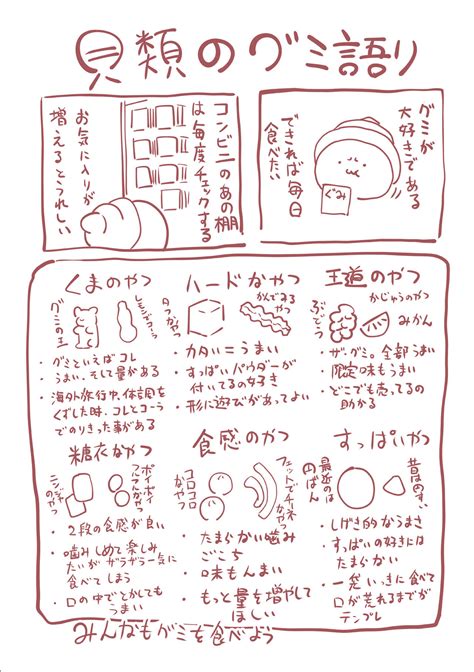 貝類のグミ語り
グミが
大好きである
できれば毎日
食べたい
ぐみ
コンビニのあの棚
は毎度チェックする
お気に入りが
増えるとうれしい
くまのやつ
グミの王
レモンもコーラも
・グミといえばコレ
・うまい、そして量がある
・海外旅行中、体調を
くずした時、コレとコーラ
でのりきった事がある
ハードなやつ
タフなやつ
かんでみるやつ
・カタい=うまい
・すっぱいパウダーが
付いてるの好き
・形に遊びがあってよい
王道のやつ
ぶどう
かじゅうのやつ
みかん
・ザ・グミ。全部うまい
・限定味もうまい
・どこでも売ってるの
助かる
糖衣なやつ
ポイポイ
つんでんなやつ
・2段の食感が良い
・噛みしめて楽しみ
たいがザラザラ一気に
食べてしまう
・口の中でとかしても
うまい
食感のやつ
コロコロ
なやつ
フェットチーネ
なやつ
・たまらない噛み
ごこち
・味もんまい
・もっと量を増やして
ほしい
すっぱいやつ
最近のは
円ばん
昔はのすい
・しげき的なうまさ
・すっぱいの好きには
たまらない
・一袋いっきに食べて
口が荒れるまでが
テンプレ
みんなもグミを食べよう